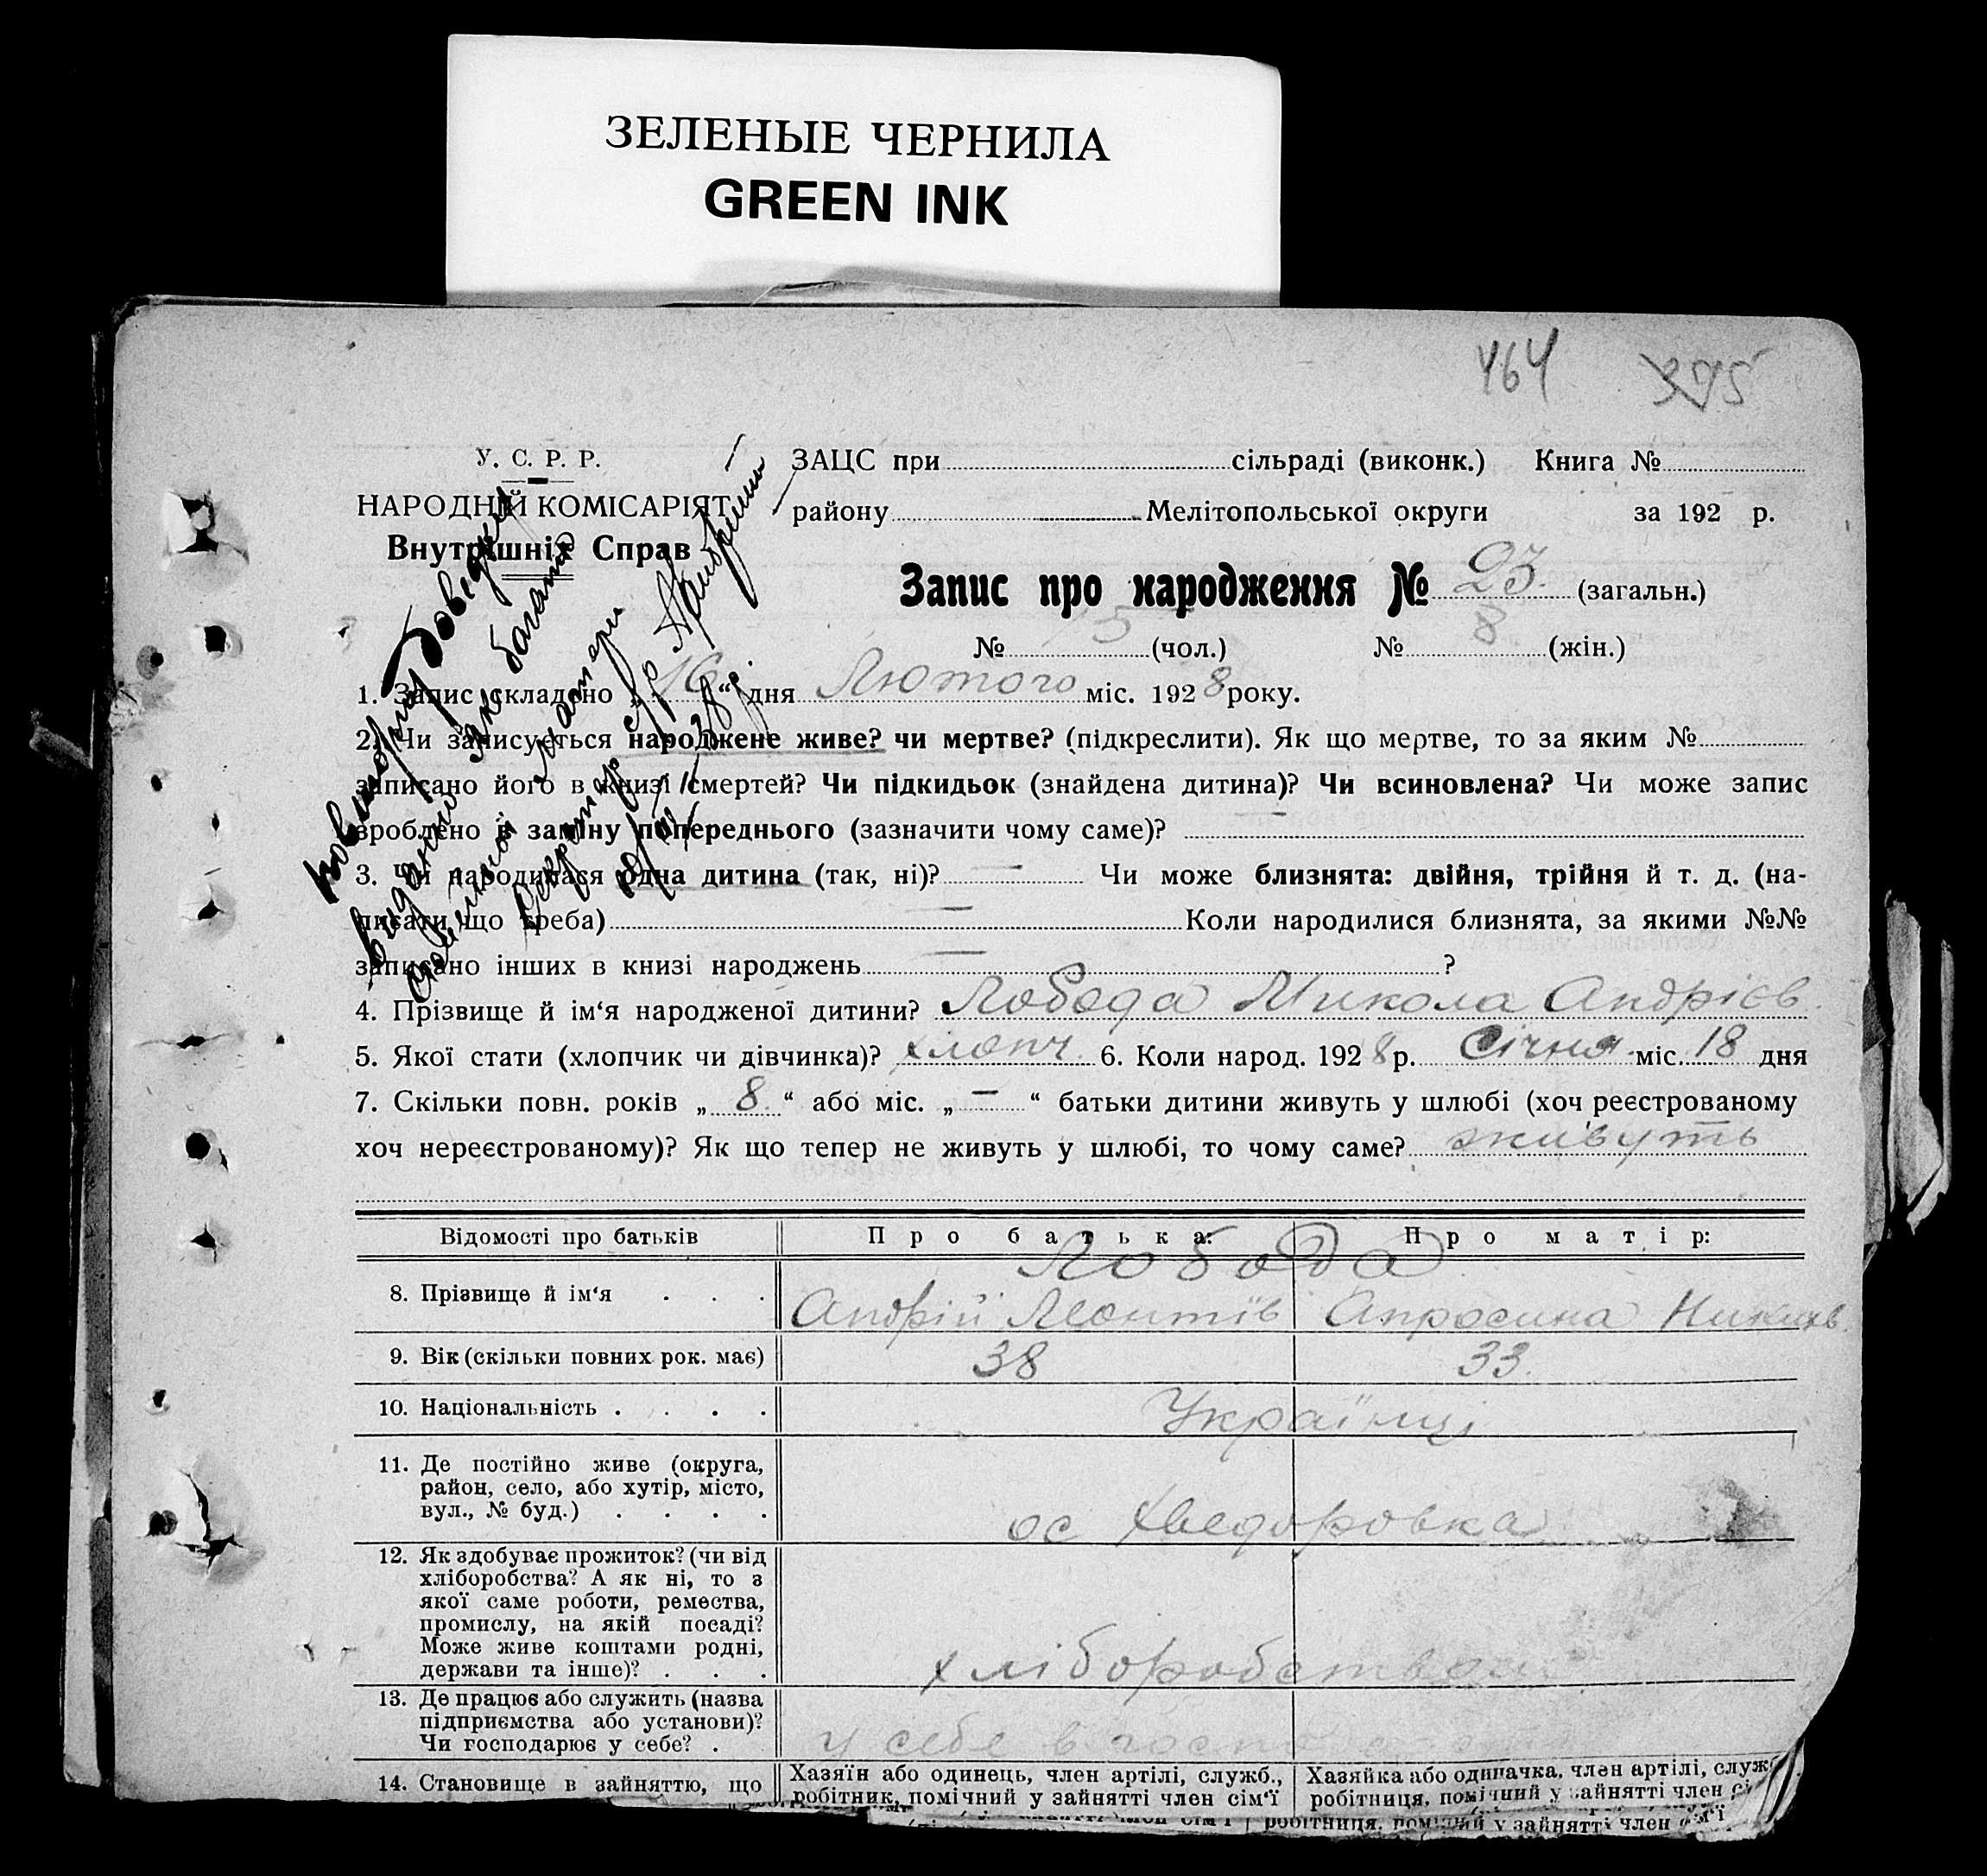 ЗЕЛЕНЫЕ ЧЕРНИЛА
GREEN INK
464 395
У. С. Р. Р.
НАРОДНІЙ КОМІСАРІЯТ
Внутрішніх Справ
ЗАЦС при сільраді (виконк.) Книга №
району Мелітопольської округи за 192 р.
Запис про народження № 23 (загальн.)
№ 15 (чол.) № 8 (жін.)
повторну довідку
видано як багатод
матери
Секретар с/р
1. Запис складено „16“ дня Лютого міс. 1928 року.
2. Чи записується народжене живе? чи мертве? (підкреслити). Як що мертве, то за яким №
записано його в книзі смертей? Чи підкидьок (знайдена дитина)? Чи всиновлена? Чи може запис
зроблено в заміну попереднього (зазначити чому саме)? —
3. Чи народилася одна дитина (так, ні)? — Чи може близнята: двійня, трійня й т. д. (на-
писати що треба) — Коли народилися близнята, за якими №№
записано інших в книзі народжень — ?
4. Прізвище й ім‘я народженої дитини? Лобода Микола Андрієв
5. Якої стати (хлопчик чи дівчинка)? хлопч. 6. Коли народ. 1928 р. Січня міс. 18 дня
7. Скільки повн. років „8“ або міс. „—“ батьки дитини живуть у шлюбі (хоч реєстрованому
хоч нереєстрованому)? Як що тепер не живуть у шлюбі, то чому саме? живуть
Відомості про батьків Про батька: Про матір:
Лобода
8. Прізвище й ім‘я . . . Андрій Леонтіїв Апросина
9. Вік (скільки повних рок. має) 38 33.
10. Національність . . . . Українці
11. Де постійно живе (округа,
район, село, або хутір, місто,
вул., № буд.) . . . . ос Хведоровка
12. Як здобуває прожиток? (чи від
хліборобства? А як ні, то з
якої саме роботи, ремества,
промислу, на якій посаді?
Може живе коштами родні,
держави та інше)? . . . хліборобством
13. Де працює або служить (назва
підприємства або установи)?
Чи господарює у себе? . у себе в
14. Становище в зайняттю, що Хазяїн або одинець, член артілі, служб., Хазяйка або одиначка, член артілі, служ
робітник, помічний у зайнятті член сім‘ї робітниця, помічний у зайнятті член сі
робітниця, помічний у зайнятті член